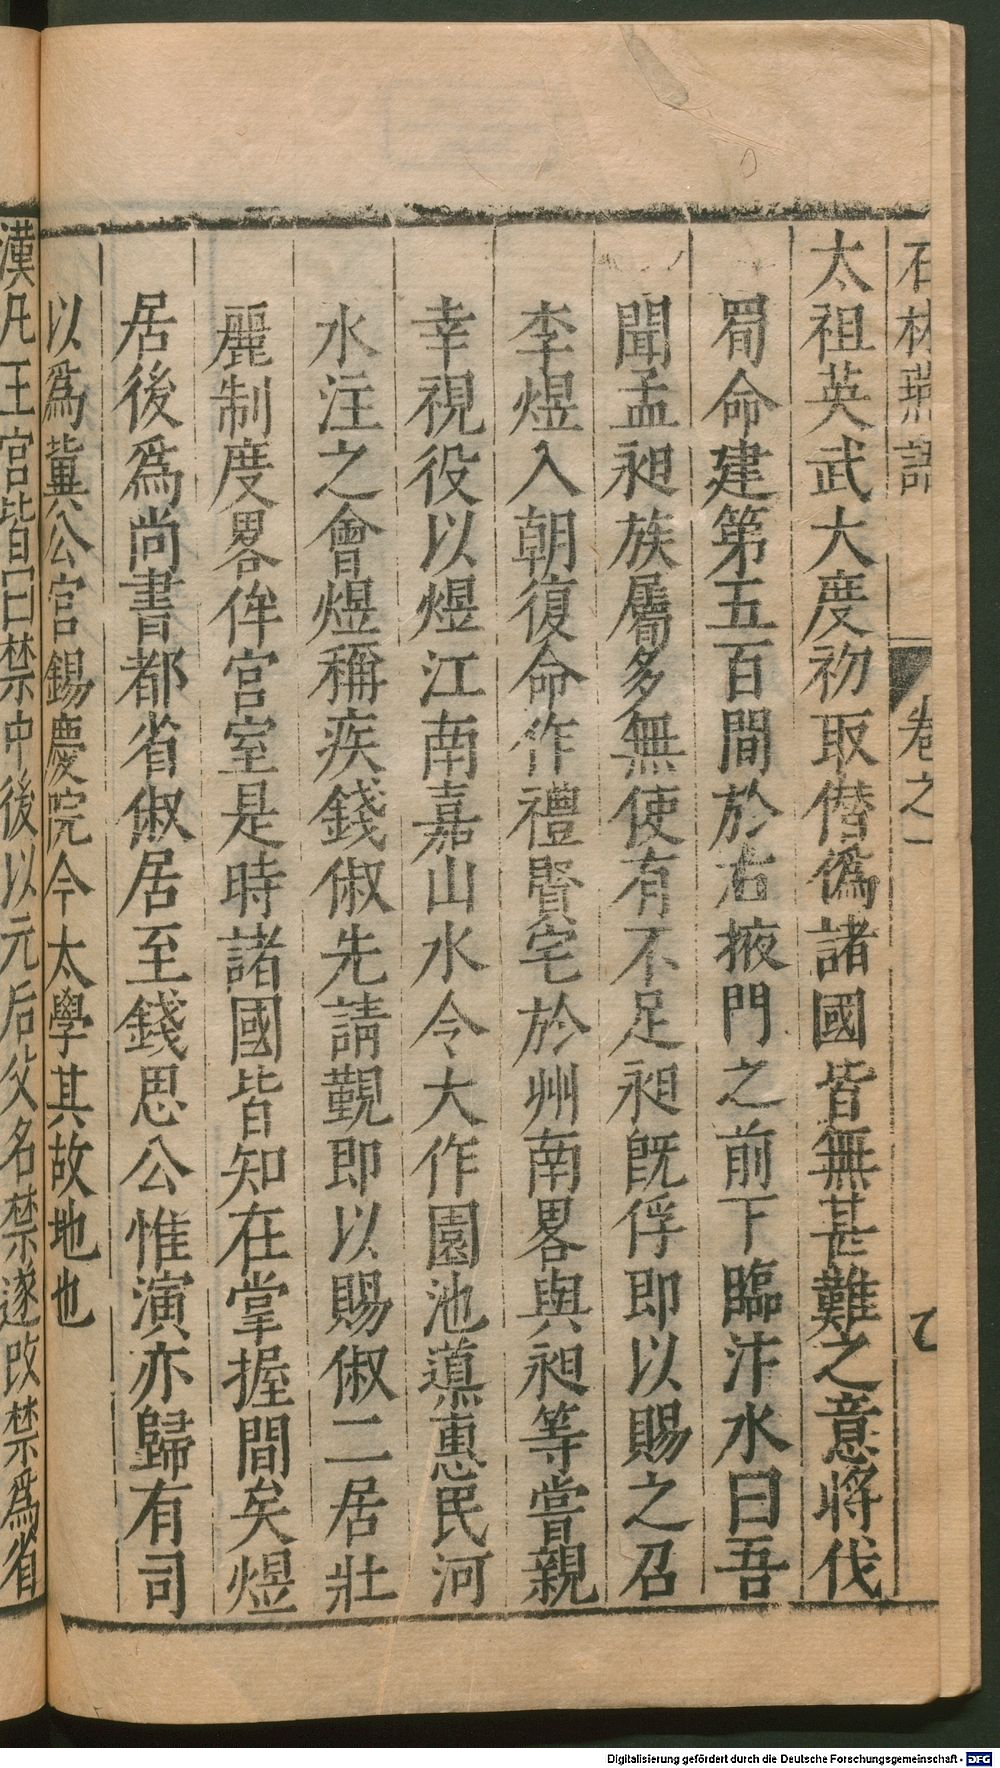 石林燕語 卷之一
太祖英武大度初取僣僞諸國皆無甚難之意將伐
蜀命建第五百間於右掖門之前下臨汴水曰吾
聞孟昶族屬多無使有不足昶旣俘即以賜之召
李煜入朝復命作禮賢宅於州南畧與昶等嘗親
幸視役以煜江南嘉山水令大作園池導惠民河
水注之會煜稱疾錢俶先請覲即以賜俶二居壯
麗制度畧侔宮室是時諸國皆知在掌握間矣煜
居後爲尚書都省俶居至錢思公惟演亦歸有司
以爲冀公宮錫慶院今太學其故地也
漢凡王宮皆曰禁中後以元后父名禁遂改禁爲省
Digitalisierung gefördert durch die Deutsche Forschungsgemeinschaft - DFG